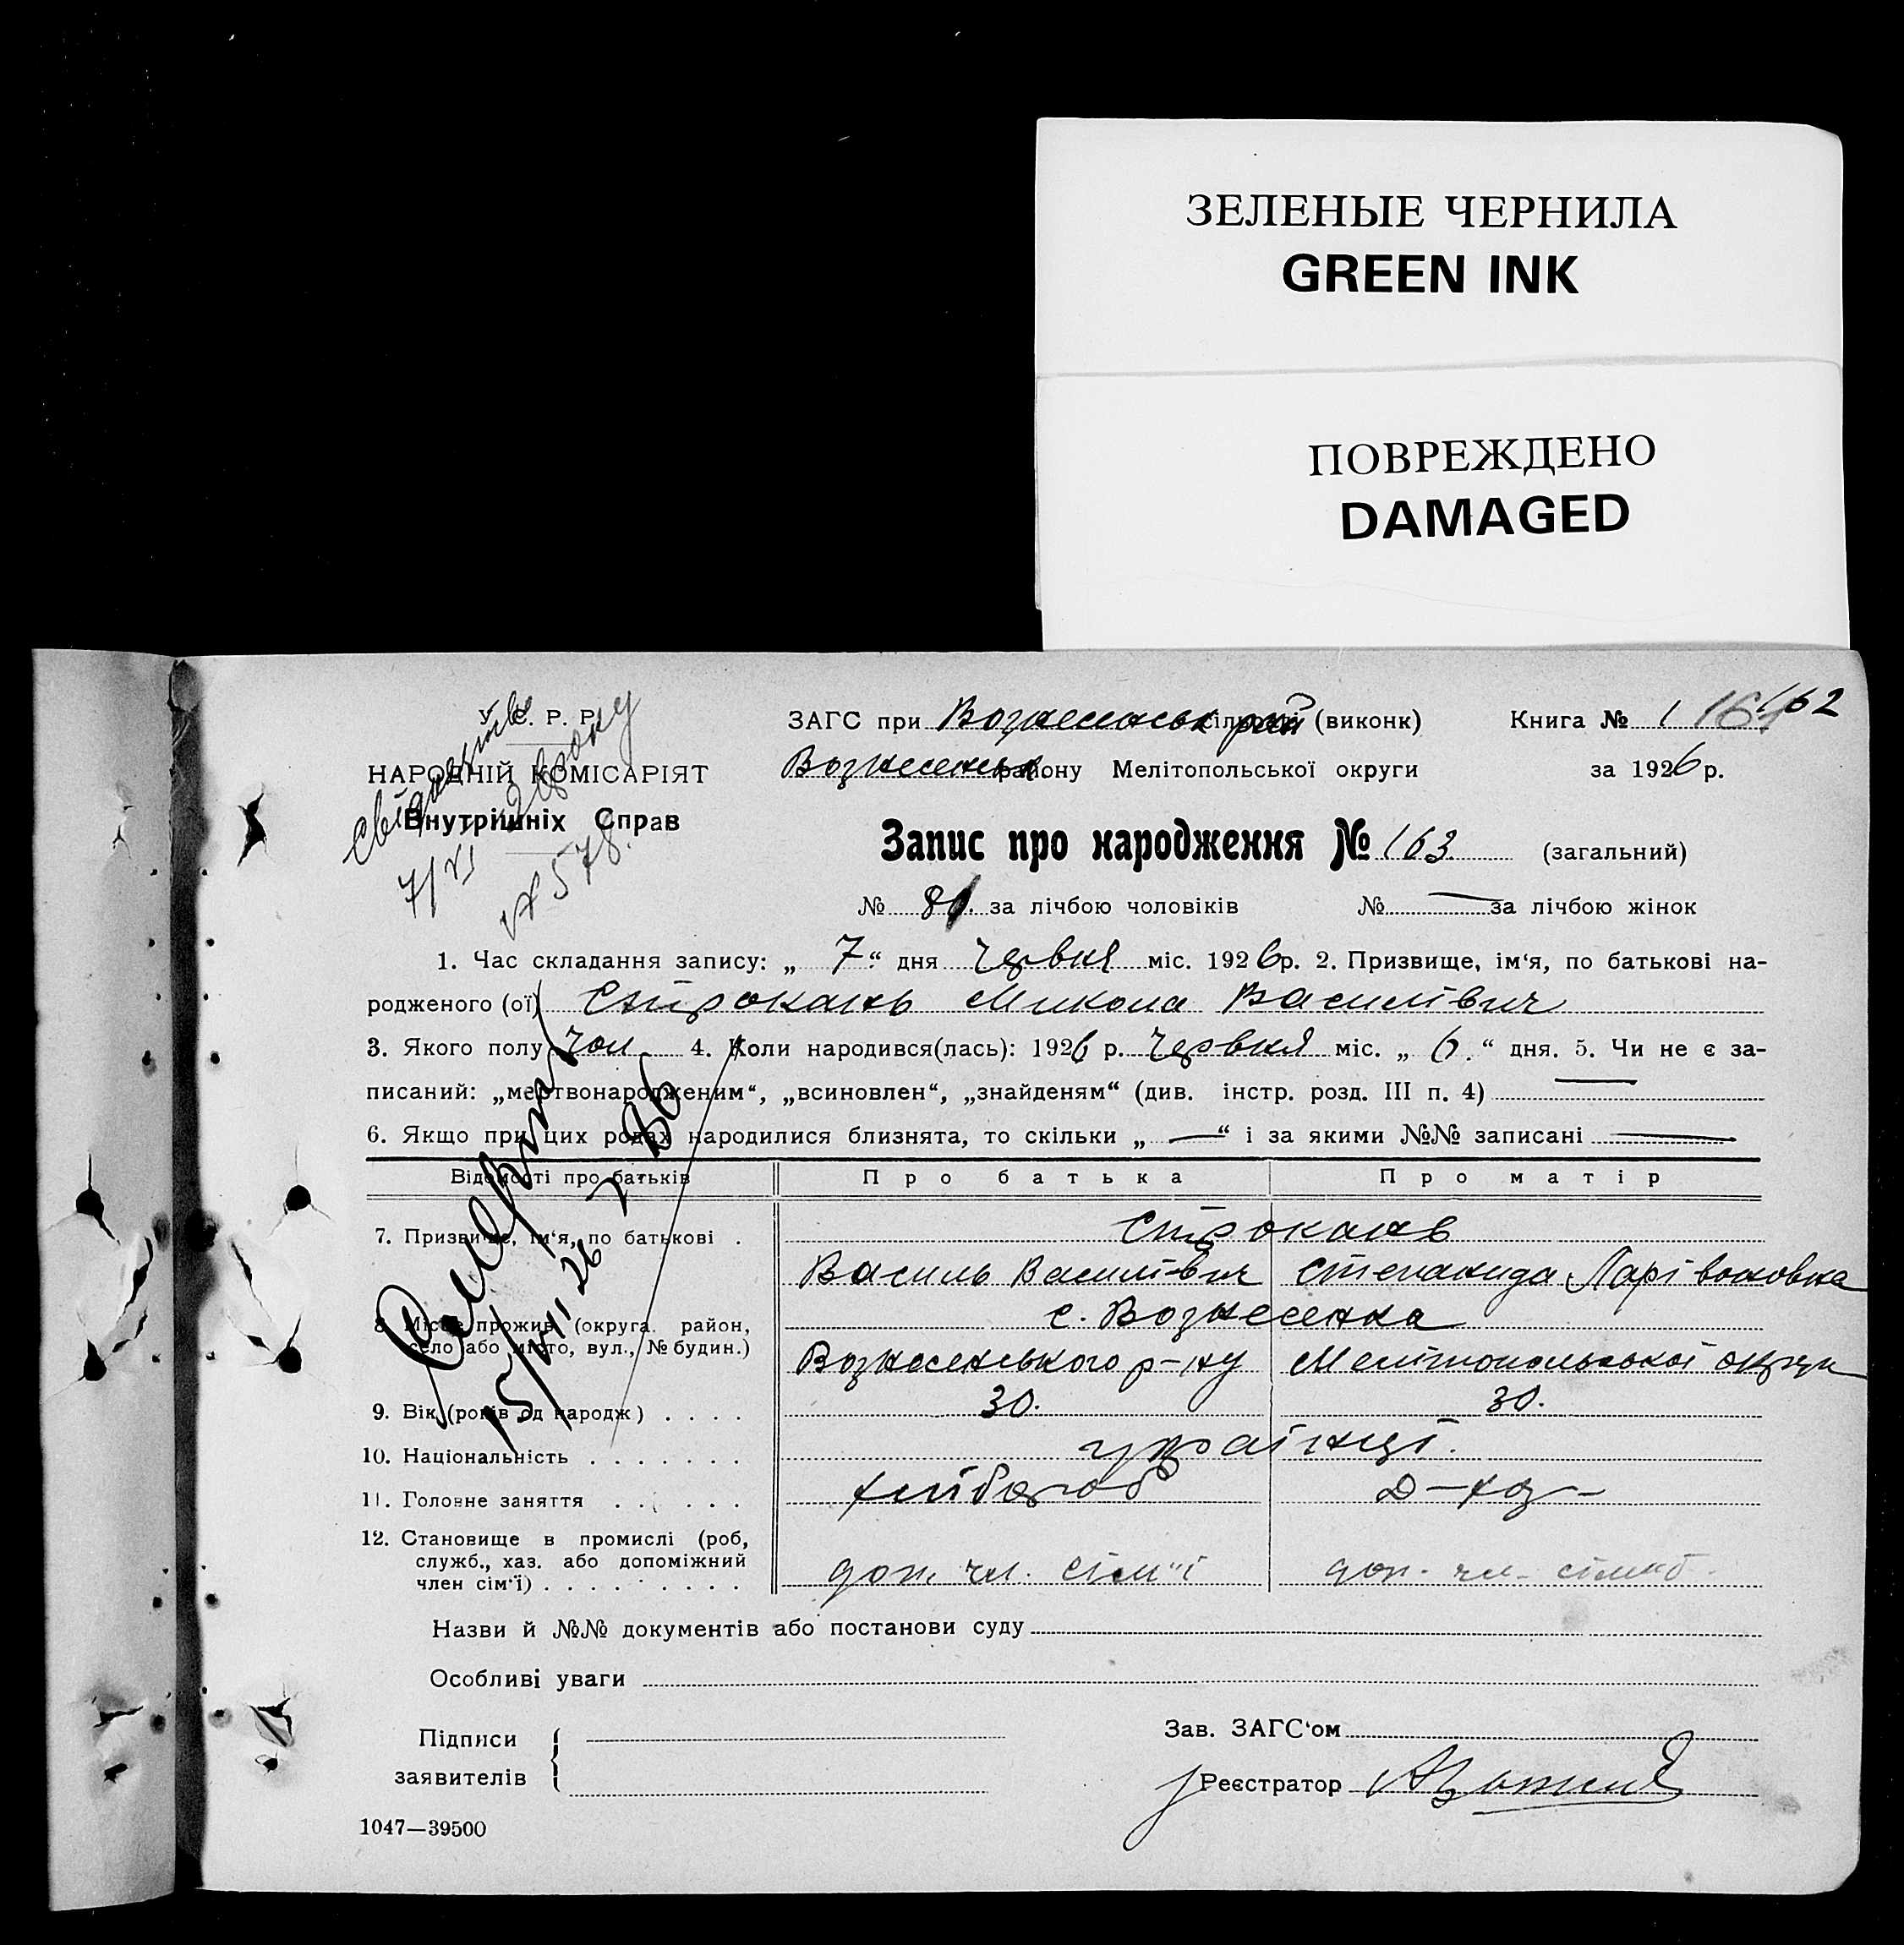 ЗЕЛЕНЫЕ ЧЕРНИЛА
GREEN INK
ПОВРЕЖДЕНО
DAMAGED
У. С. Р. Р.
НАРОДНІЙ КОМІСАРІЯТ
Внутрішніх Справ
7/VI
№ 578.
ЗАГС при Вознесенськ рай (виконк)
Книга № 1 162
Вознесенськ району Мелітопольської округи
за 1926 р.
Запис про народження № 163 (загальний)
№ 81. за лічбою чоловіків № — за лічбою жінок
1. Час складання запису: „ 7 “ дня Червня міс. 1926 р. 2. Призвище, ім‘я, по батькові на-
родженого (ої) Строкань Микола Василівич
3. Якого полу чол 4. Коли народився(лась): 1926 р. Червня міс. „ 6. “ дня. 5. Чи не є за-
писаний: „мертвонародженим“, „всиновлен“, „знайденям“ (див. інстр. розд. III п. 4) —
6. Якщо при цих родах народилися близнята, то скільки „ — “ і за якими №№ записані —
Відомості про батьків Про батька Про матір
7. Призвище, ім‘я, по батькові . Строкань
Василь Василівич Степанида Ларівоновна
с. Вознесенка
8. Місце прожив. (округа, район,
село або місто, вул., № будин.) Вознесенського р-ну Мелітопольської округи
9. Вік (років од народж) . . . . 30. 30.
10. Національність . . . . . . . українці.
11. Головне заняття . . . . . . хлібороб Д-хоз-
12. Становище в промислі (роб,
служб., хаз. або допоміжний
член сім‘ї) . . . . . . . . . доп. чл. сім"ї доп. чл.
15/VII 26
Назви й №№ документів або постанови суду
Особливі уваги
Підписи
заявителів
Зав. ЗАГС‘ом
Реєстратор
1047—39500